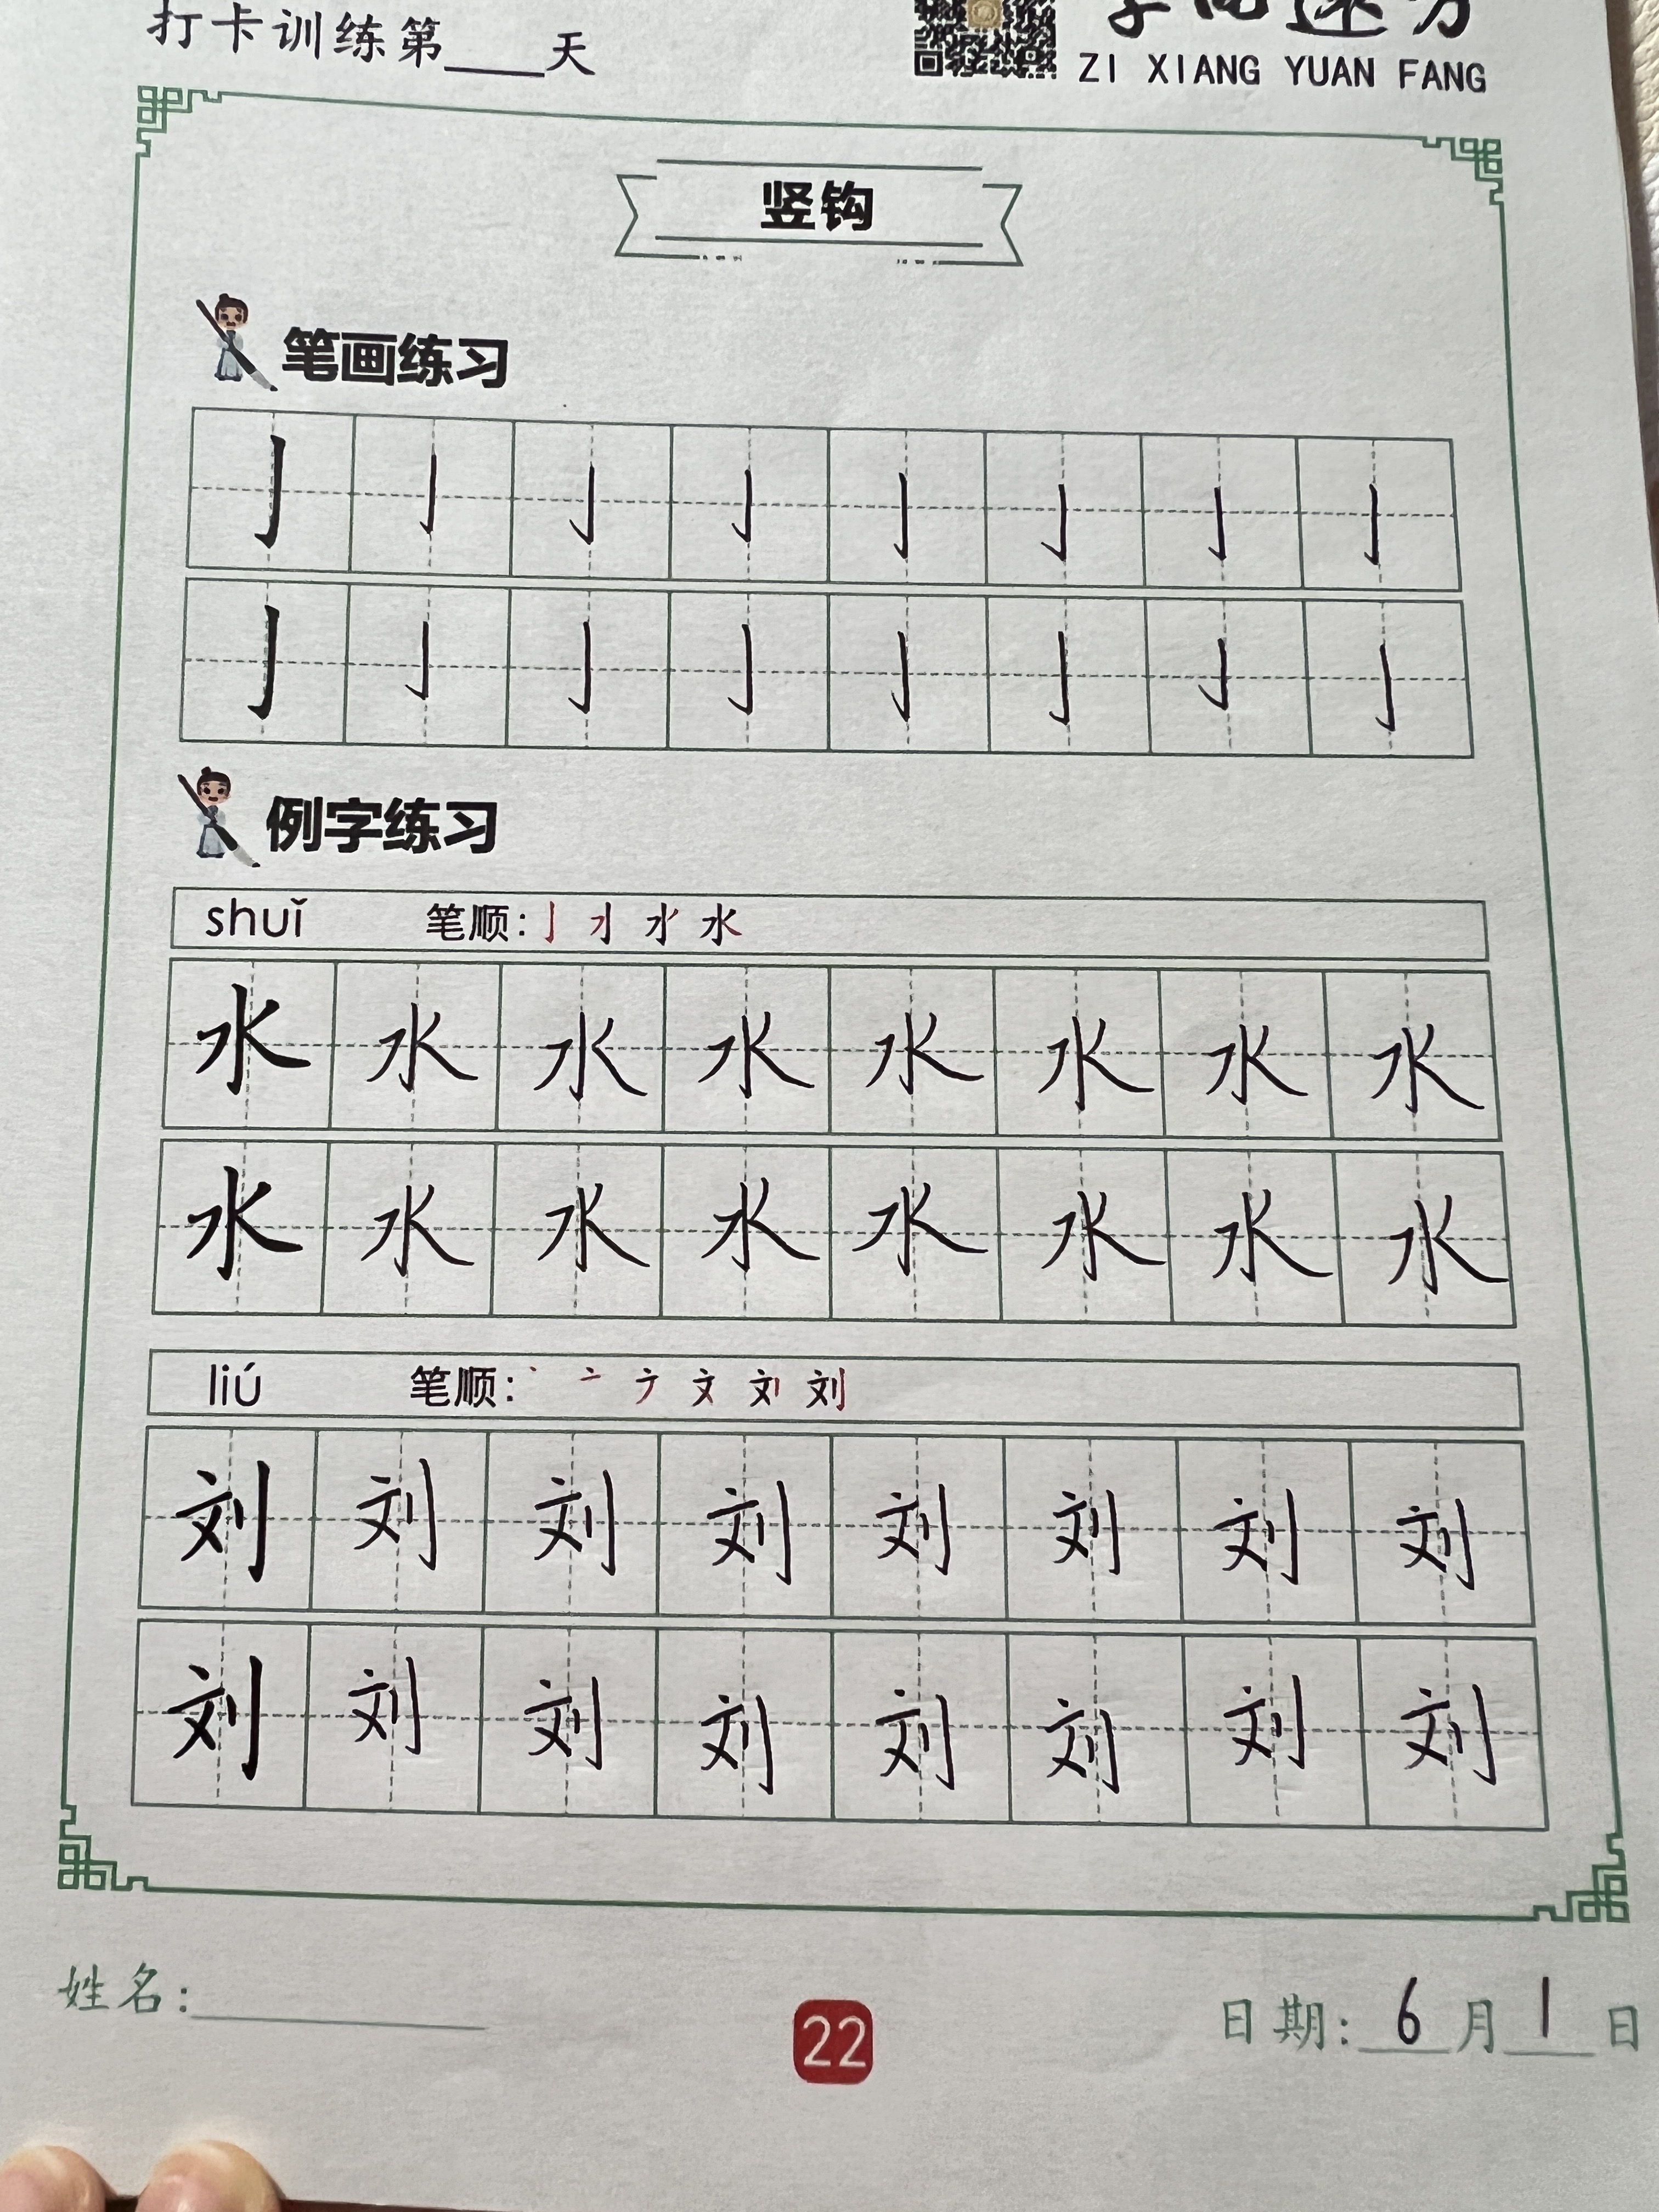 打卡训练第____天
ZI XIANG YUAN FANG
竖钩
笔画练习
亅 亅 亅 亅 亅 亅 亅 亅
亅 亅 亅 亅 亅 亅 亅 亅
例字练习
shuǐ 笔顺: 水
水 水 水 水 水 水 水 水
水 水 水 水 水 水 水 水
liú 笔顺: 刘
刘 刘 刘 刘 刘 刘 刘 刘
刘 刘 刘 刘 刘 刘 刘 刘
姓名:
22
日期: 6 月 1 日